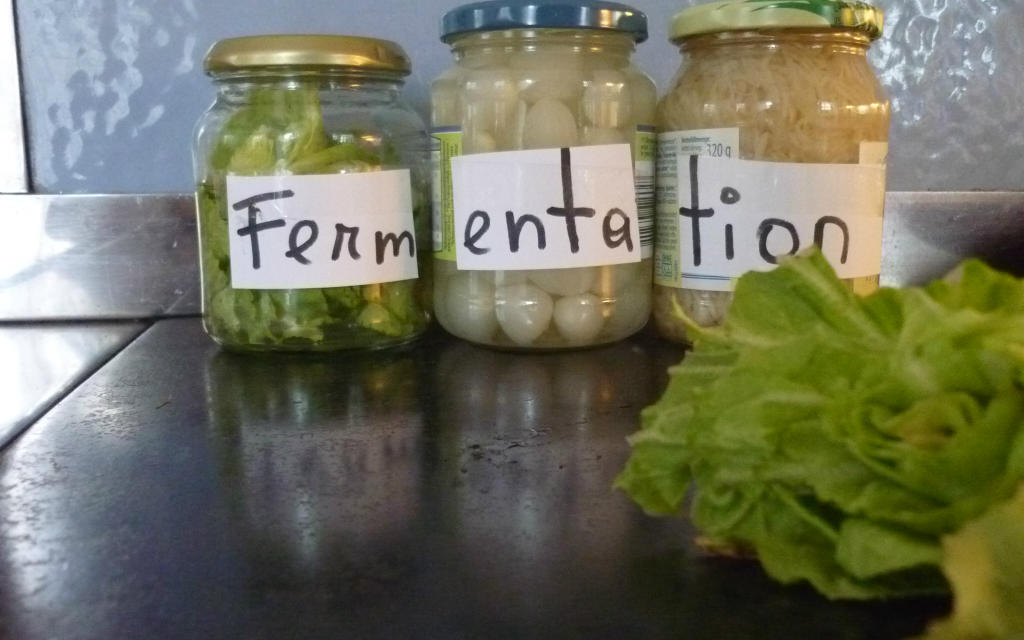 Ferm enta tion
320 g